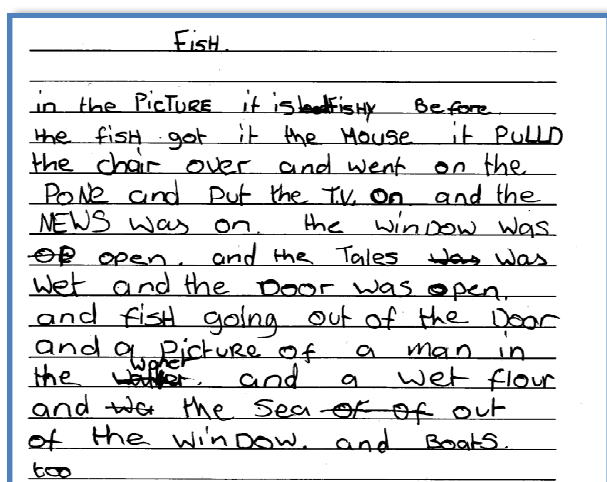 FisH.
in the PicTURE it is FisHY Before
the fisH got it the Mouse it PULLD
the chair over and went on the
PoNe and Put the T.V. On and the
NEWS Was on. the WinDOW was
open. and the Tales Was
Wet and the Door was open.
and fisH going out of the Door
and a PicTURE of a man in
the Warter. and a Wet flour
and the Sea out
of the WinDOW. and BoatS.
too